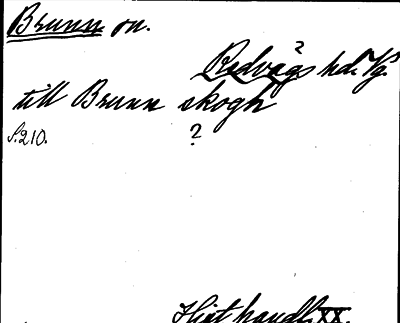 Brunn on.
?
Redvägs hd. Vg.
till Brunn skogh
?
S. 210.
Hist handl. XX.